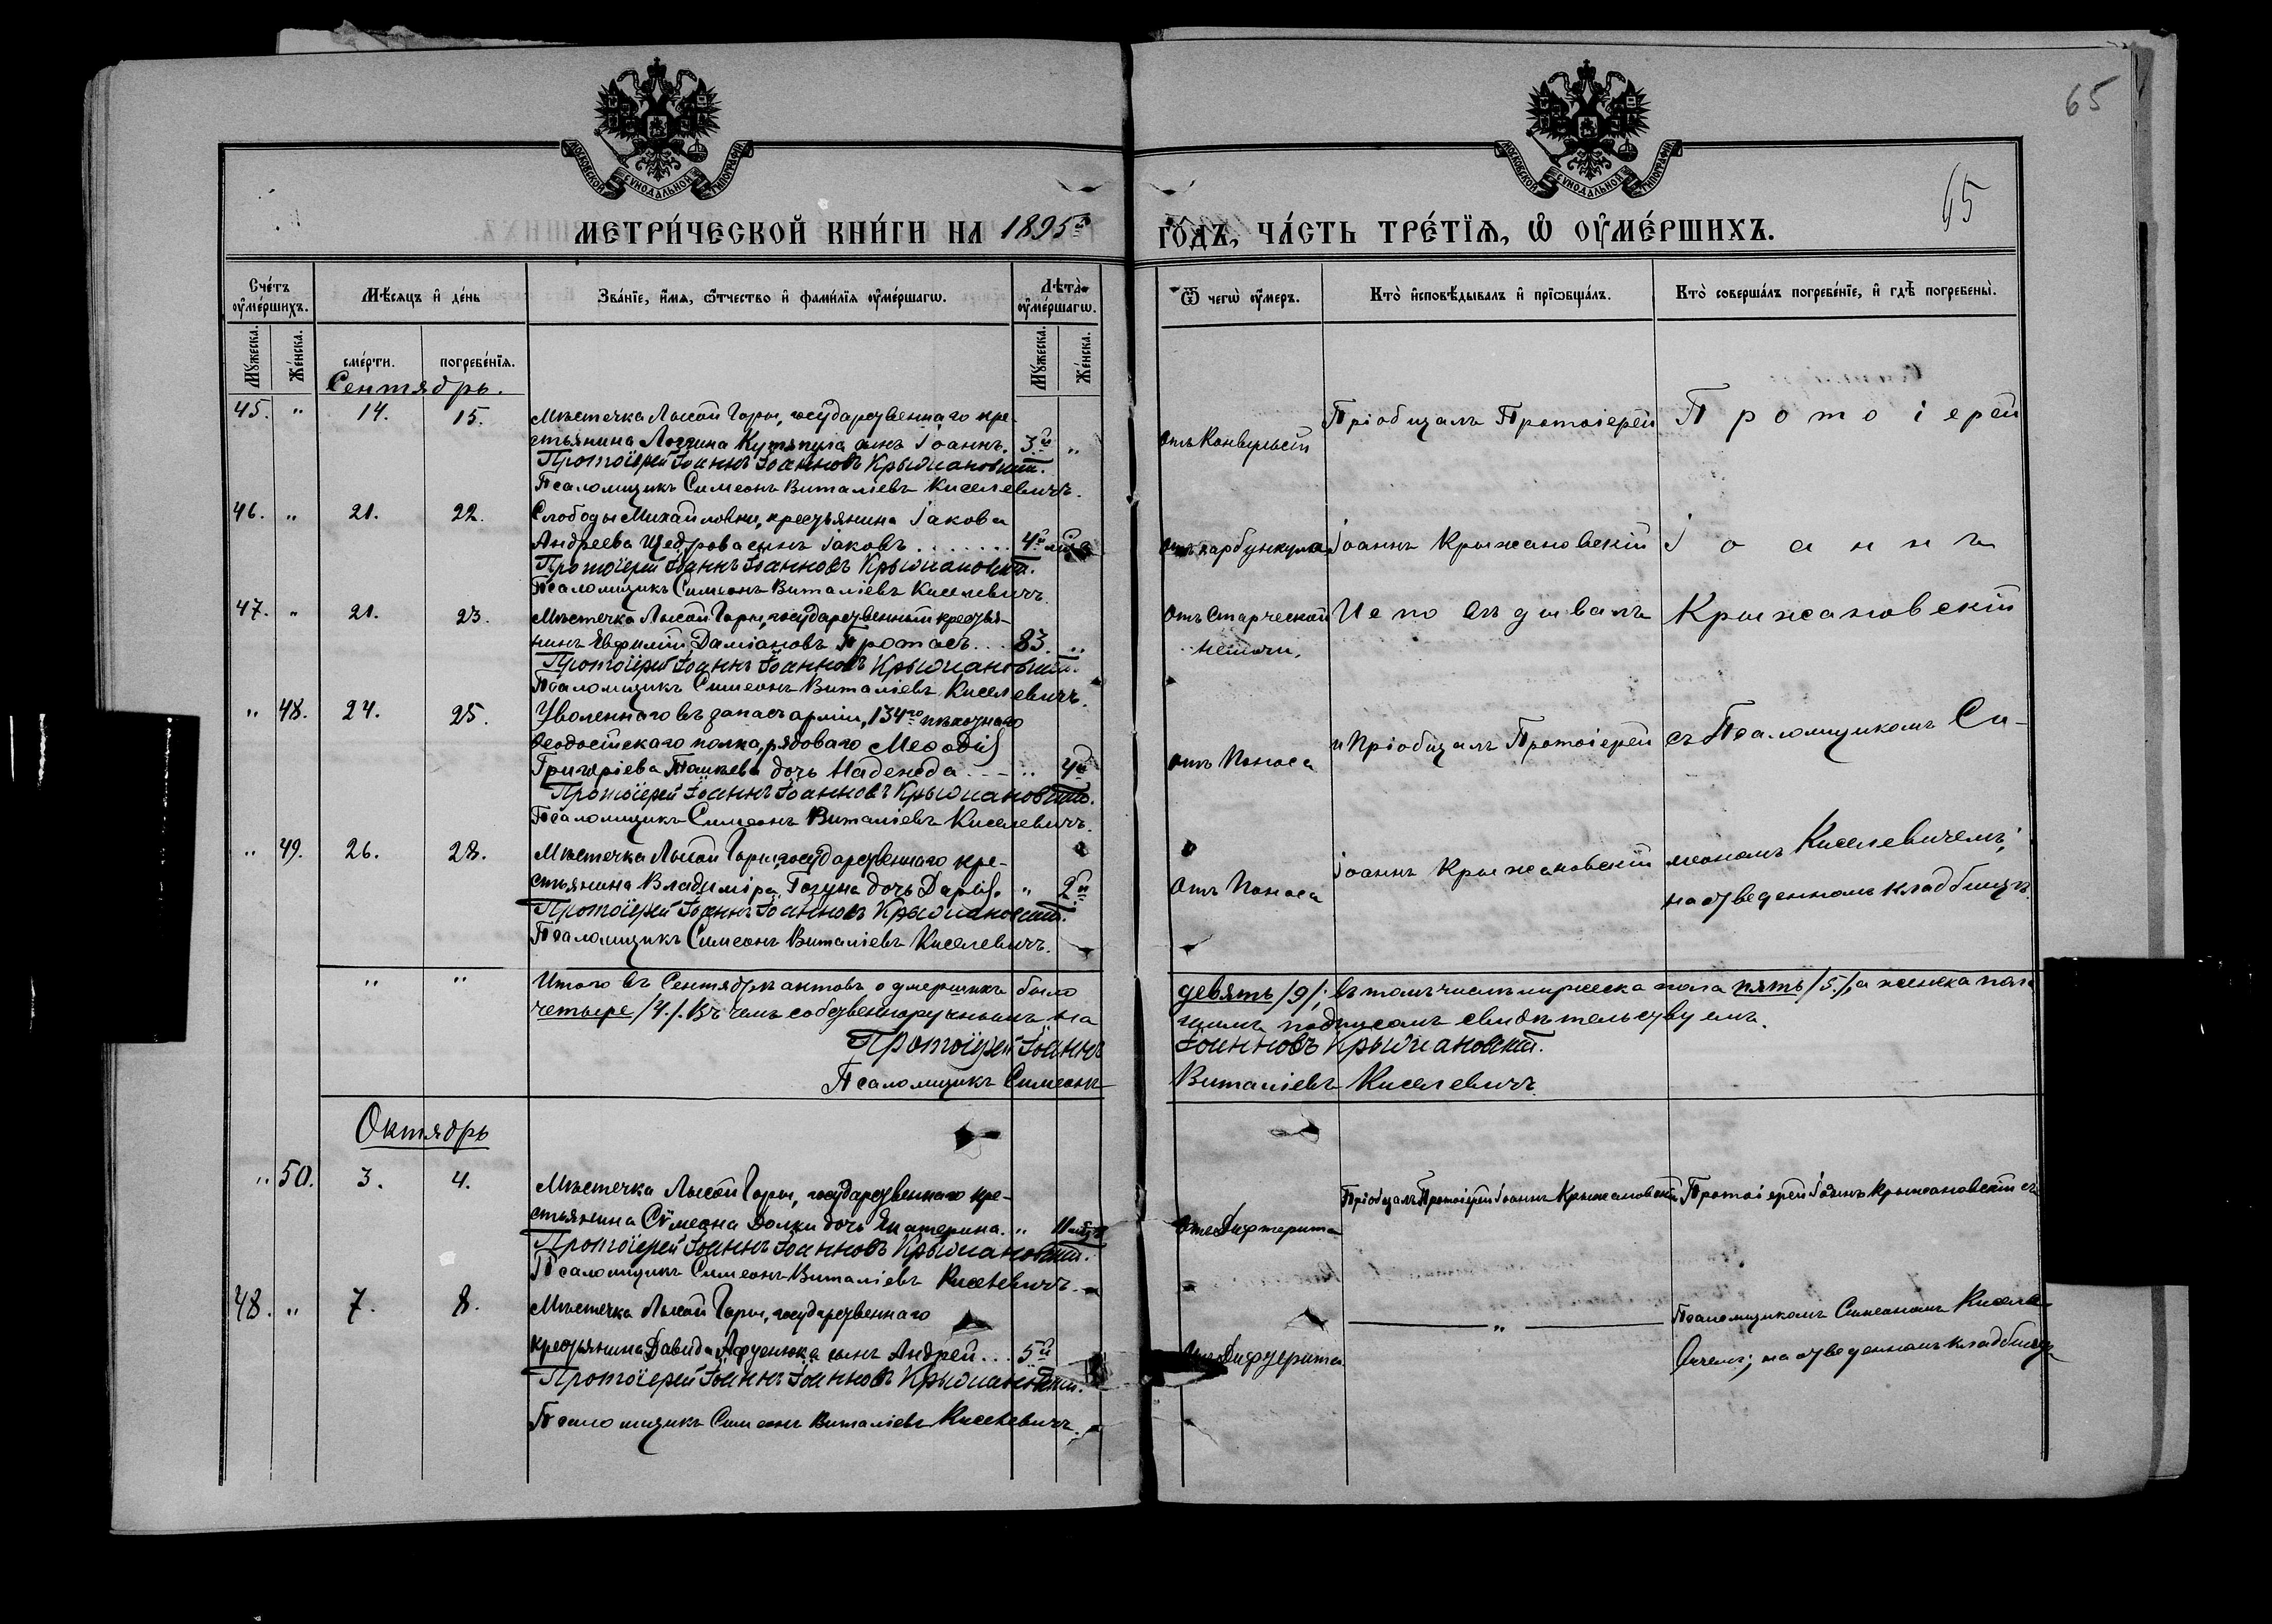 65
МОСКОВСКОЙ СѴНОДАЛЬНОЙ ТИПОГРАФІИ
МОСКОВСКОЙ СѴНОДАЛЬНОЙ ТИПОГРАФІИ
65
МЕТРИ́ЧЕСКОЙ КНИ́ГИ НА 1895й
ГОДЪ, ЧА́СТЬ ТРЕ́ТЇѦ, Ѡ ОУМЕ́РШИХЪ.
Сче́тъ оуме́ршихъ.
Мѣсяцъ и де́нь
Зва́нїе, и́мя, ѿтчество и фами́лїя оуме́ршагѡ.
Лѣта̀ оуме́ршагѡ.
Ѿ чегѡ̀ оумеръ.
Кто̀ исповѣдывалъ и прїѡбща́лъ.
Кто̀ соверша́лъ погребе́нїе, и гдѣ погребены̀.
Мꙋжеска. Же́нска.
сме́рти. погребе́нїя.
Мꙋжеска. Же́нска.
Сентябрь.
45. " 14. 15. Мѣстечка Лысой Горы, государственнаго кре-
стьянина Логгина сынъ Іоаннъ. 3й "
Протоіерей Іоаннъ Іоанновъ Крыжановскій.
Псаломщикъ Симеонъ Виталіевъ Киселевичъ.
Отъ Конвульсій
Пріобщалъ Протоіерей
Протоіерей
46. " 21. 22. Слободы Михайловки, крестьянина Іакова
Андреева Щедрова сынъ Іаковъ . . . . . . . 4й
Протоіерей Іоаннъ Іоанновъ Крыжановскій.
Псаломщикъ Симеонъ Виталіевъ Киселевичъ.
Отъ карбункула
Іоаннъ Крыжановскій
Іоаннъ
47. " 21. 23. Мѣстечка Лысой Горы, государственный крестья-
нинъ Евфимій Даміановъ Протасъ . . . 83. "
Протоіерей Іоаннъ Іоанновъ Крыжановскій.
Псаломщикъ Симеонъ Виталіевъ Киселевичъ.
Отъ Старческой
немочи.
Исповѣдывалъ
Крыжановскій
" 48. 24. 25. Уволеннаго въ запасъ арміи, 134го пѣхотнаго
Ѳеодосійскаго полка, рядоваго Меѳодія
Григоріева дочь Надежда . - - " 4й
Протоіерей Іоаннъ Іоанновъ Крыжановскій.
Псаломщикъ Симеонъ Виталіевъ Киселевичъ.
Отъ Поноса
и Пріобщалъ Протоіерей
съ Псаломщикомъ Си-
" 49. 26. 28. Мѣстечка Лысой Горы, государственнаго кре-
стьянина Владиміра дочь Дарія. " 2й
Протоіерей Іоаннъ Іоанновъ Крыжановскій.
Псаломщикъ Симеонъ Виталіевъ Киселевичъ.
Отъ Поноса
Іоаннъ Крыжановскій
меономъ Киселевичемъ;
на отведенномъ кладбищѣ.
" " Итого въ Сентябрѣ актовъ о умершихъ было
девять /9/; въ томъ числѣ мужеска пола пять /5/, а женска пола
четыре /4./. Въ чемъ собственноручнымъ на
шимъ подписомъ свидѣтельствуемъ.
Протоіерей Іоаннъ
Іоанновъ Крыжановскій.
Псаломщикъ Симеонъ
Виталіевъ Киселевичъ.
Октябрь
" 50. 3. 4. Мѣстечка Лысой Горы, государственнаго кре-
стьянина Сѵмеона Долки дочь Екатерина. " 11
Протоіерей Іоаннъ Іоанновъ Крыжановскій.
Псаломщикъ Симеонъ Виталіевъ Киселевичъ.
Отъ Дифтерита
Пріобщалъ Протоіерей Іоаннъ Крыжановскій
Протоіерей Іоаннъ Крыжановскій съ
48. " 7. 8. Мѣстечка Лысой Горы, государственнаго
крестьянина Давида сынъ Андрей . . . 5й
Протоіерей Іоаннъ Іоанновъ Крыжановскій.
Псаломщикъ Симеонъ Виталіевъ Киселевичъ.
Отъ Дифтерита
"
Псаломщикомъ Симеономъ Киселе-
вичемъ; на отведенномъ кладбищѣ